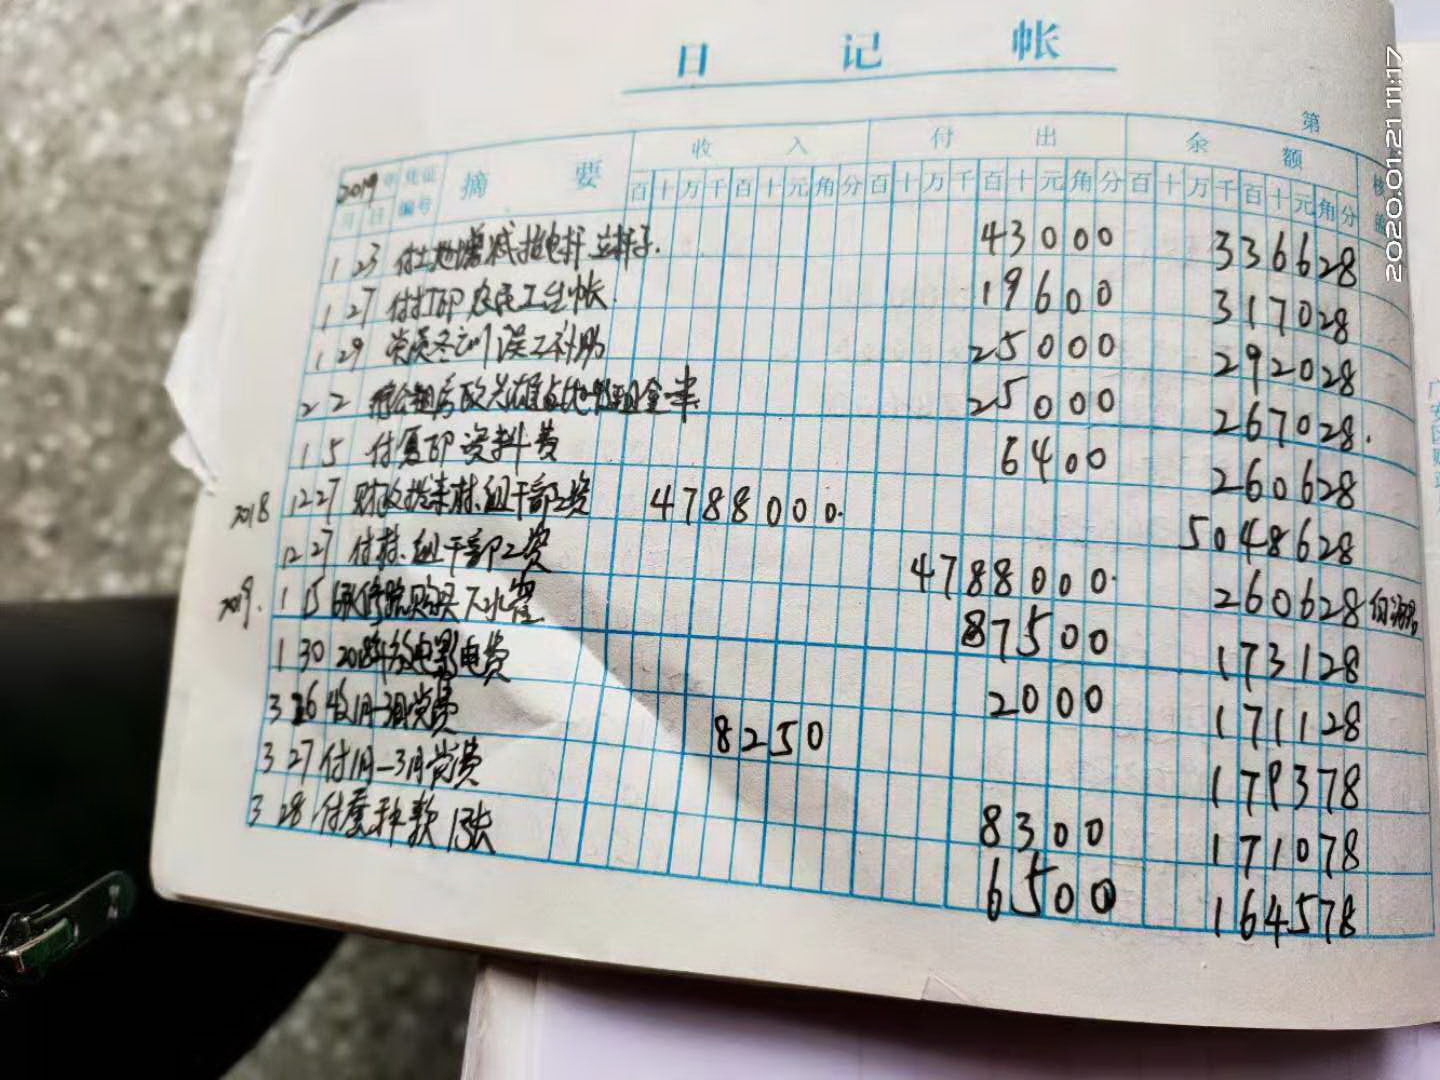 日 记 帐
第
2019 年 凭证 摘 要 收 入 付 出 余 额 核
月 日 编号 百 十 万 千 百 十 元 角 分 百 十 万 千 百 十 元 角 分 百 十 万 千 百 十 元 角 分
1 23 付土地增减 电杆 43000 336628
1 27 付打印农民工台帐 19600 317028
1 29 党员冬训误工补助 25000 292028
2 2 25000 267028.
1 5 付复印资料费 6400 260628
2018 12 27 财政拨来村、组干部工资 4788000. 5048628
12 27 付村、组干部工资 4788000. 260628
2019. 1 15 购买下水管 87500 173128
1 30 2018年放电影电费 2000 171128
3 26 收1月-3月党费 8250 179378
3 27 付1月-3月党费 8300 171078
3 28 付蚕种款 13张 6500 164578
2020.01.21 11:17